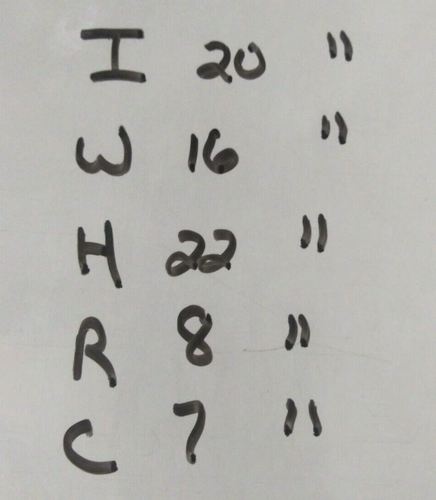 I 20 "
W 16 "
H 22 "
R 8 "
C 7 "